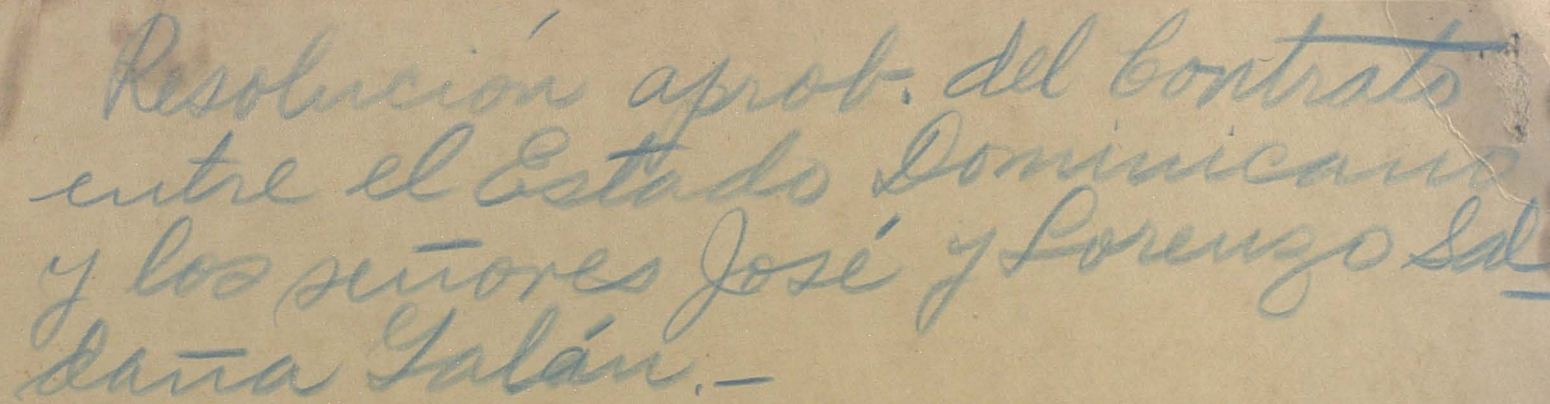 Resolución aprob. del Contrato
entre el Estado Dominicano
y los señores José y Lorenzo Sal-
daña Galán.-